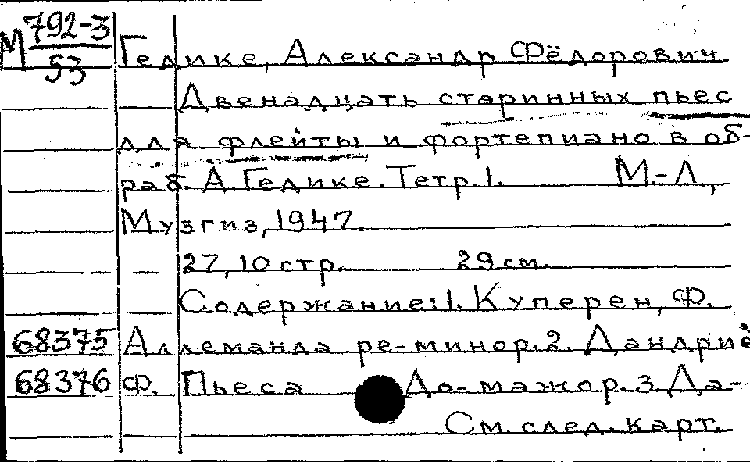 М 792-3
53
Гедике, Александр Фёдорович
Двенадцать старинных пьес
для флейты и фортепиано в об-
раб. А Гедике. Тетр. 1. М.-Л,
Музгиз, 1947.
27, 10 стр. 29 см.
Содержание: 1. Куперен, Ф.
68375 Аллеманда ре-минор. 2. Дандриё
68376 Ф. Пьеса До-мажор. 3. Да-
См. след. карт.